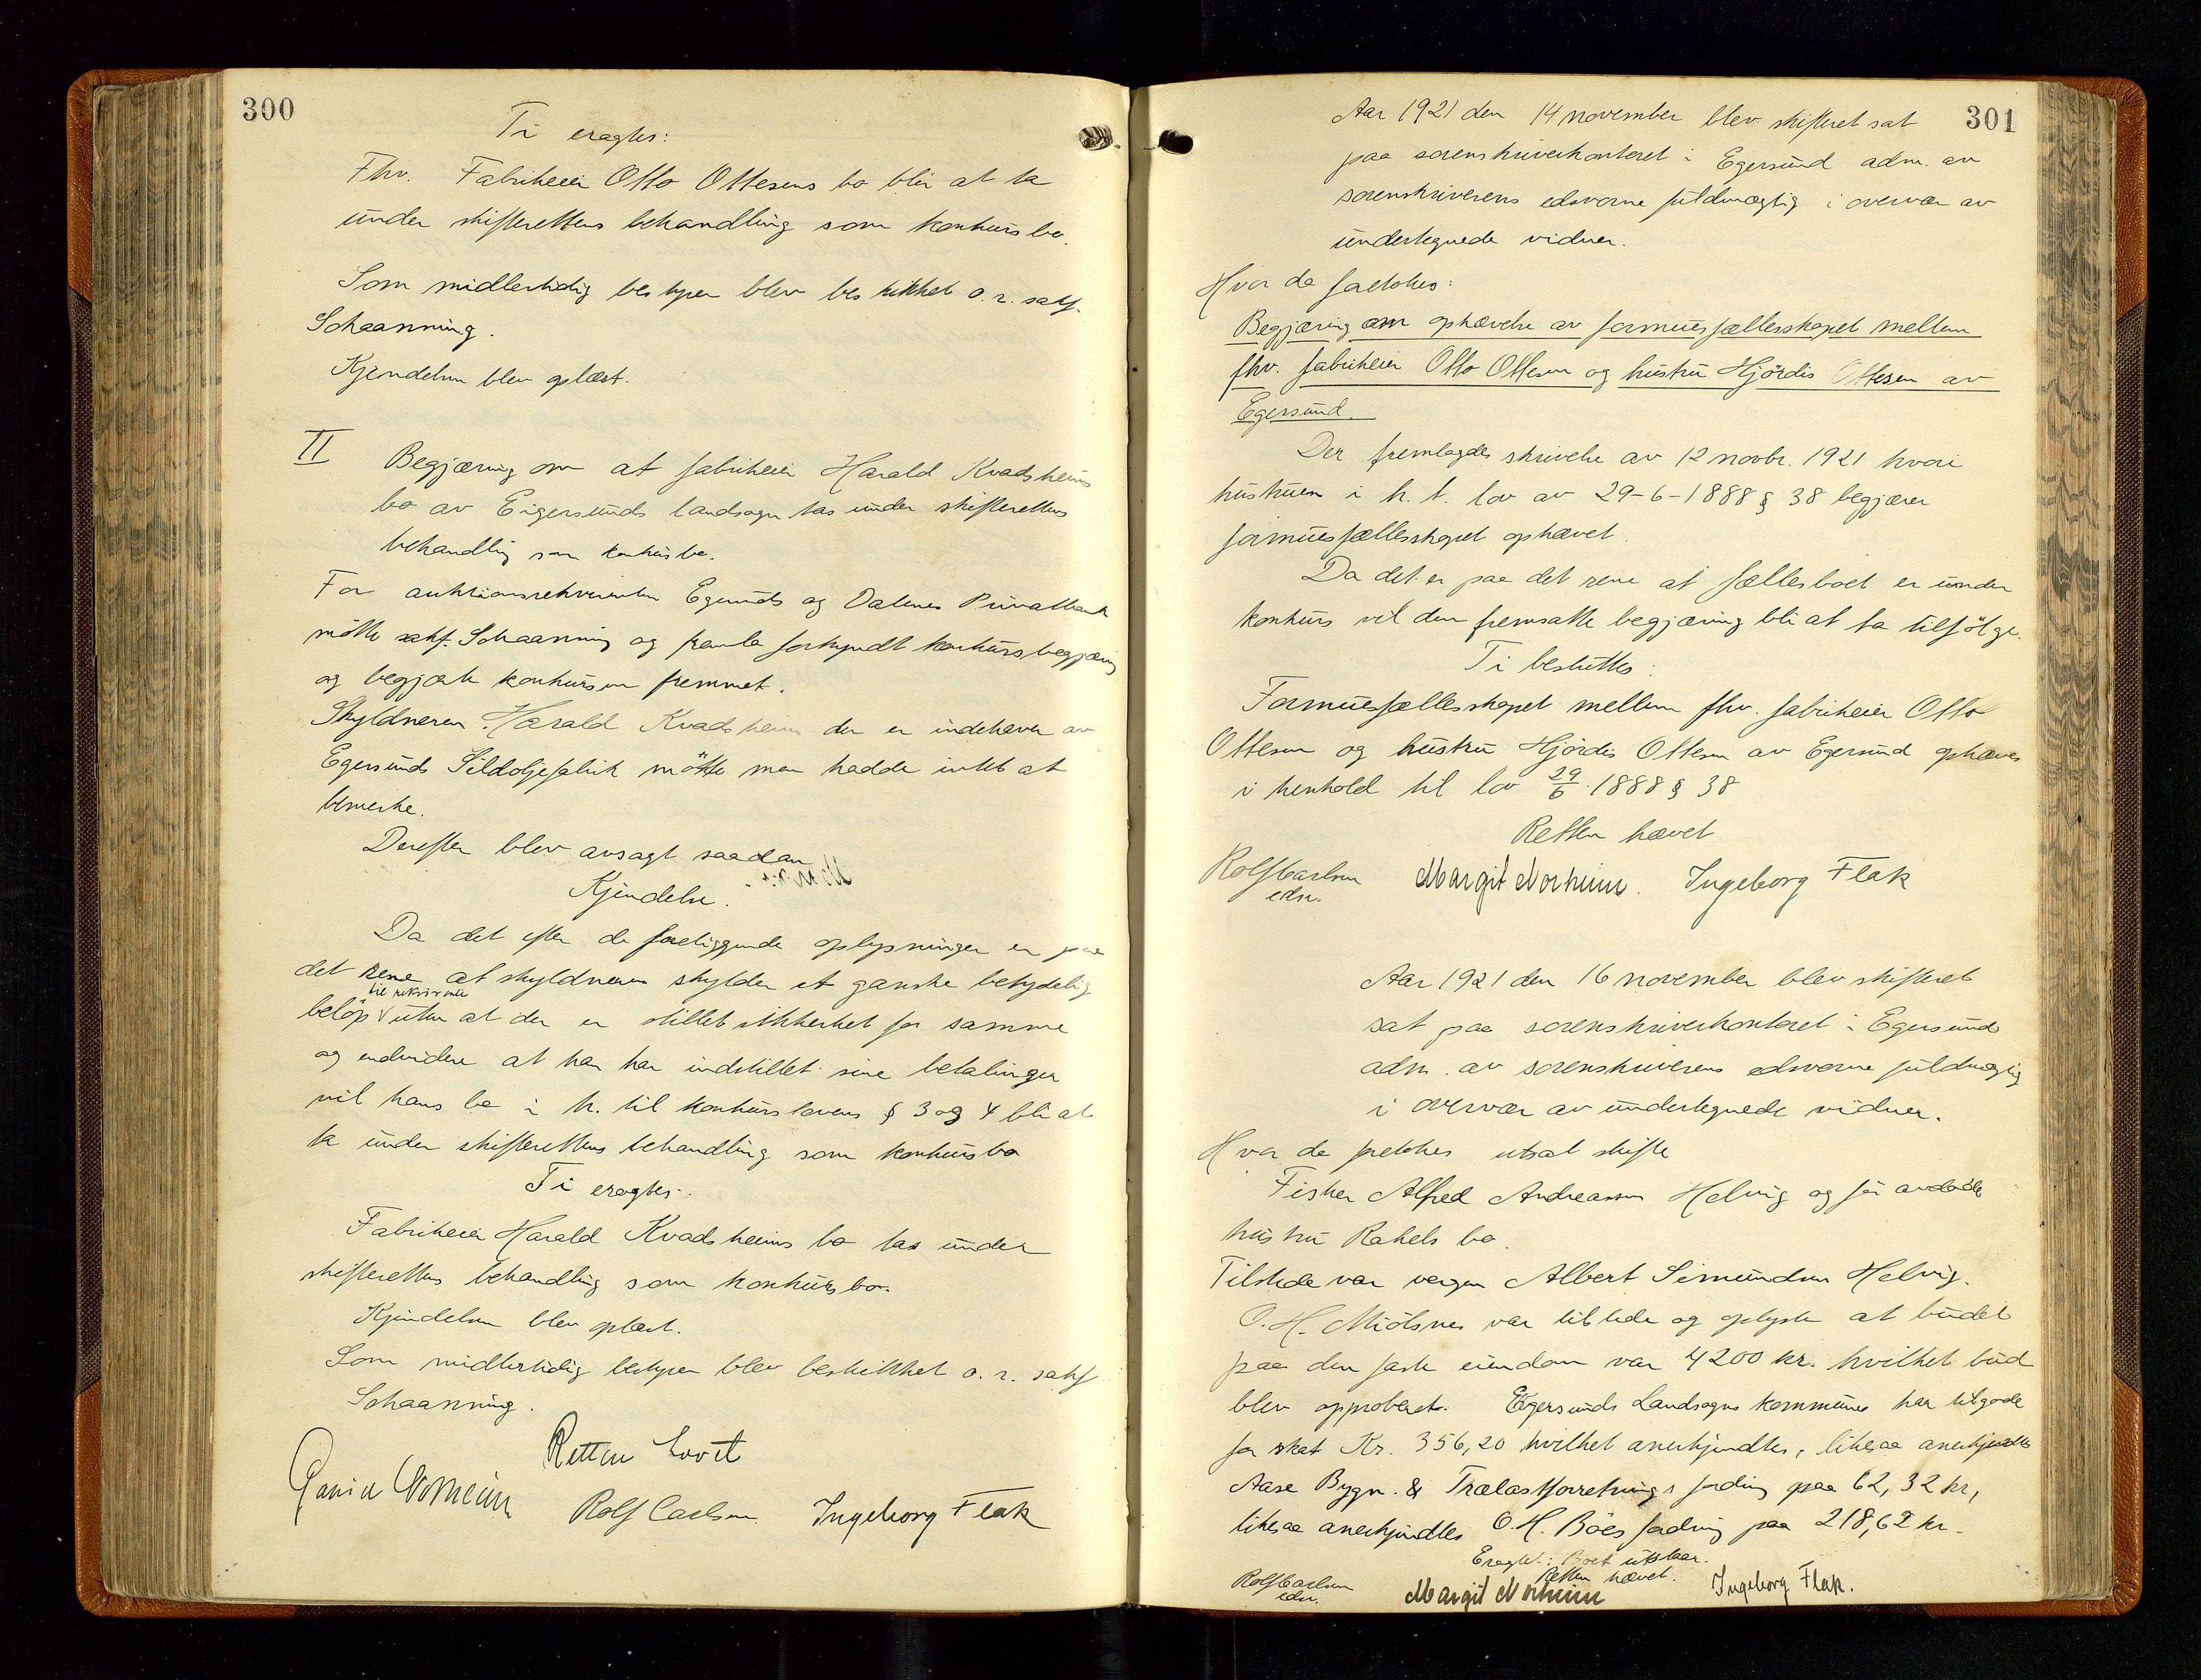 300
Ti eragtes:
Fhv. Fabrikeier Otto Ottesens bo blir at ta
under skifterettens behandling som konkursbo.
Som midlertidig bestyrer blev beskikket o.r.sakf.
Schaanning.
Kjendelsen blev oplæst.
II Begjæring om at fabrikeier Harald Kvadsheims
bo av Eigersunds landsogn tas under skifterettens
behandling som konkursbo.
For auktionsrekvirenten Egersunds og Dalenes Privatbank
møtte sakf. Schaanning og fremla forkyndt konkursbegjæring
og begjærte konkursen fremmet.
Skyldneren Harald Kvadsheim der er indehaver av
Egersunds Sildoljefabrik møtte men hadde intet at
bemerke.
Derefter blev avsagt saadan
Kjendelse.
Da det efter de foreliggende oplysninger er paa
det rene at skyldneren skylder et ganske betydelig
til rekvirenten
beløp uten at der er stillet sikkerhet for samme
og endvidere at han har indstillet sine betalinger
vil hans bo i h. til konkurslovens § 3 og 4 bli at
ta under skifterettens behandling som konkursbo
Ti eragtes:
Fabrikeier Harald Kvadsheims bo tas under
skifterettens behandling som konkursbo.
Kjendelsen blev oplæst.
Som midlertidig bestyrer blev beskikket o.r.sakf
Schaanning.
Retten hævet
Rolf Carlsen Ingeborg Flak
301
Aar 1921 den 14 november blev skifteret sat
paa sorenskriverkontoret i Egersund adm. av
sorenskriverens edsvorne fuldmægtig i overvær av
undertegnede vidner.
Hvor da foretokes:
Begjæring om ophævelse av formuesfællesskapet mellem
fhv. fabrikeier Otto Ottesen og hustru Hjördis Ottesen av
Egersund.
Der fremlagdes skrivelse av 12 novbr. 1921 hvori
hustruen i h. t. lov av 29-6-1888 § 38 begjærer
formuesfællesskapet ophævet.
Da det er paa det rene at fællesboet er under
konkurs vil den fremsatte begjæring bli at ta tilfölge.
Ti besluttes:
Formuesfællesskapet mellem fhv. fabrikeier Otto
Ottesen og hustru Hjördis Ottesen av Egersund ophæves
i henhold til lov 29/6 1888 § 38
Retten hævet
Rolf Carlsen Margit Norheim. Ingeborg Flak
edsv.
Aar 1921 den 16 november blev skifteret
sat paa sorenskriverkontoret i Egersund
adm. av sorenskriverens edsvorne fuldmægtig
i overvær av undertegnede vidner.
Hvor da foretokes utsat skifte
Fisker Alfred Andreassen Helvig og før avdøde
hustru Rakels bo.
Tilstede var vergen Albert Simundsen Helvig.
O. H. Miölsnes var tilstede og oplyste at budet
paa den faste eiendom var 4200 kr. hvilket bud
blev approberet. Egersunds Landsogns kommune har tilgode
for skat Kr. 356,20 hvilket anerkjendtes, likesaa anerkjendtes
Aase Bygn. & Trælastforretnings fordring paa 62,32 kr,
likesaa anerkjendtes O. H. Böes fordring paa 218,62 kr.
Eragtet: Boet utstaar.
Retten hævet.
Rolf Carlsen Margit Norheim Ingeborg Flak.
edsv.